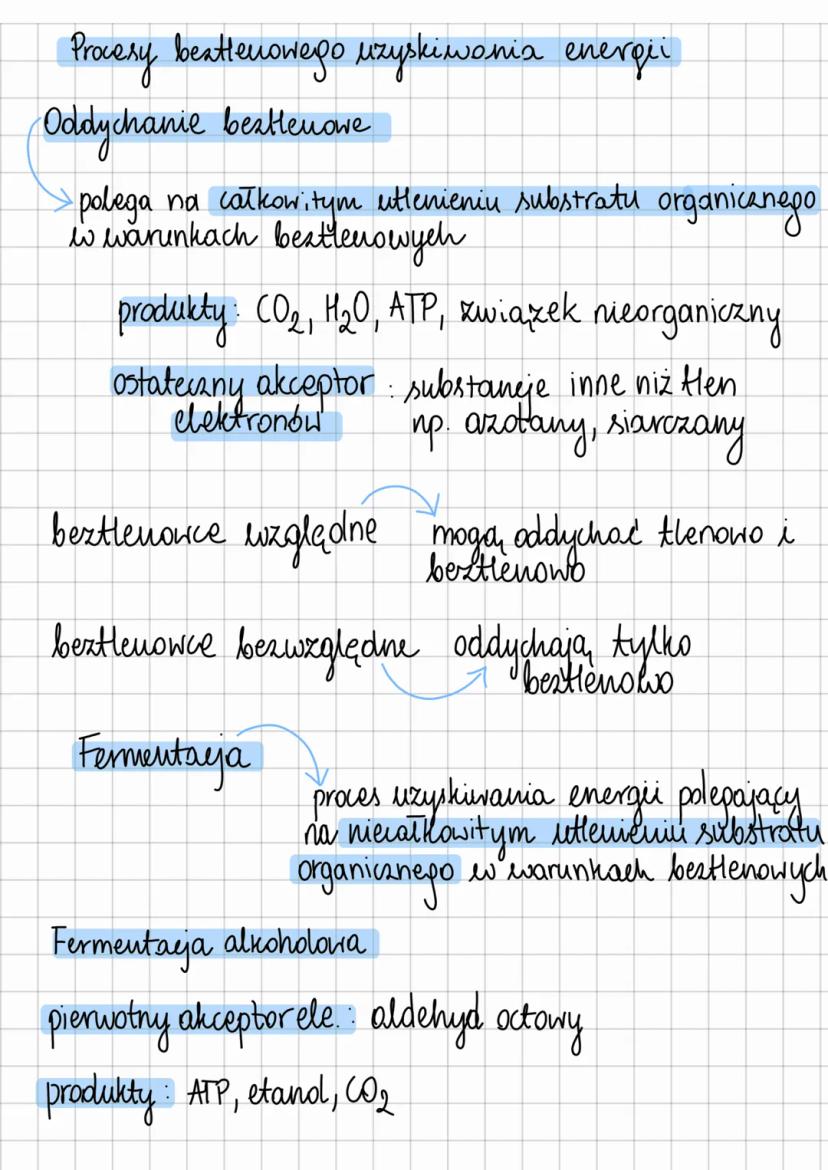 Procesy beztlenowego uzyskiwania energii
Oddychanie beztlenowe
polega na całkowitym utlenieniu substratu organicznego
w warunkach beztlenowych
produkty: CO2, H2O, ATP, związek nieorganiczny
ostateczny akceptor : substancje inne niż tlen
elektronów np. azotany, siarczany
beztlenowce względne mogą oddychać tlenowo i
beztlenowo
beztlenowce bezwzględne oddychają tylko
beztlenowo
Fermentacja
proces uzyskiwania energii polegający
na niecałkowitym utlenieniu substratu
organicznego w warunkach beztlenowych
Fermentacja alkoholowa
pierwotny akceptor ele.: aldehyd octowy
produkty: ATP, etanol, CO2